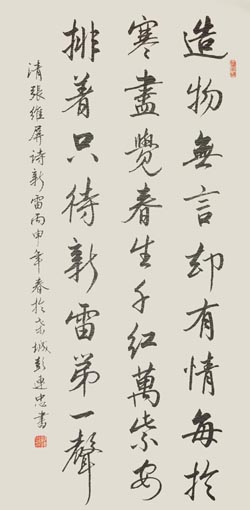 造物無言却有情每於
寒盡覺春生千紅萬紫安
排著只待新雷第一聲
清張維屏詩新雷丙申年春於柴城彭連忠書